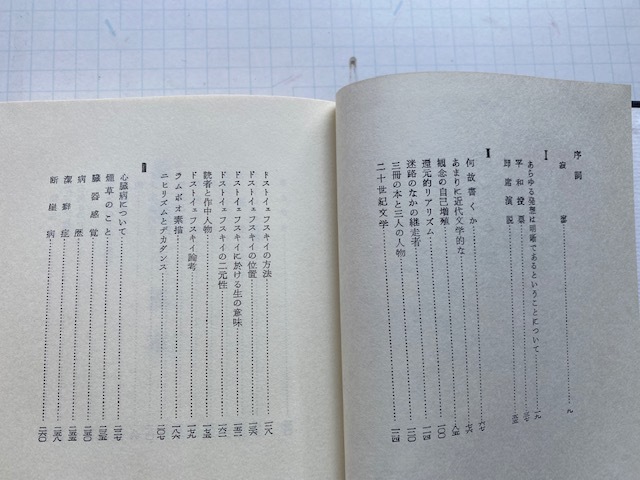 序詞
寂寥 九
I
あらゆる発想は明晰であるということについて 一九
平和投票 二七
即席演説 三五
II
何故書くか 六七
あまりに近代文学的な 七六
観念の自己増殖 八五
還元的リアリズム 一〇〇
迷路のなかの継走者 一一四
三冊の本と三人の人物
二十世紀文学 一二四
ドストイェフスキイの方法 一二八
ドストイェフスキイの位置 一三六
ドストイェフスキイに於ける生の意味 一五二
ドストイェフスキイの二元性 一六二
読者と作中人物 一七五
ドストイェフスキイ論考 一七九
ラムボオ素描 一八六
ニヒリズムとデカダンス 二〇七
III
心臓病について 二二七
煙草のこと 二三五
臓器感覚 二五〇
病歴 二五五
潔癖症 二五九
断崖病 二六〇